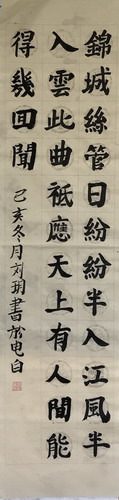 錦城絲管日紛紛半入江風半
入雲此曲祗應天上有人間能
得幾回聞
己亥冬月刘玥書於电白